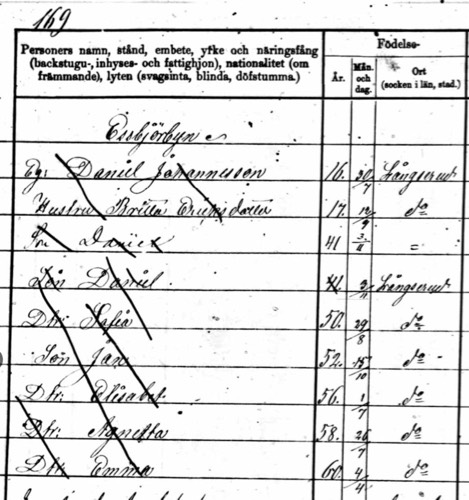 169
Personers namn, stånd, embete, yrke och näringsfång
(backstugu-, inhyses- och fattighjon), nationalitet (om
främmande), lyten (svagsinta, blinda, döfstumma.)
Födelse-
År.
Mån. och dag.
Ort
(socken i län, stad.)
Esbjörbyn
Eg: Daniel Johannesson 16. 20/7 Långserud
Hustru Britta Ericsdotter 17. 12/9 do
Son Daniel 41 3/11 =
Son Daniel 41. 3/11 Långserud
Dtr: Sofia 50. 29/8 do
Son Jan 52. 15/10 do
Dtr: Elisabet 56. 1/7 do
Dtr: Agnetta 58. 26/7 do
Dtr: Emma 60 4/4 do